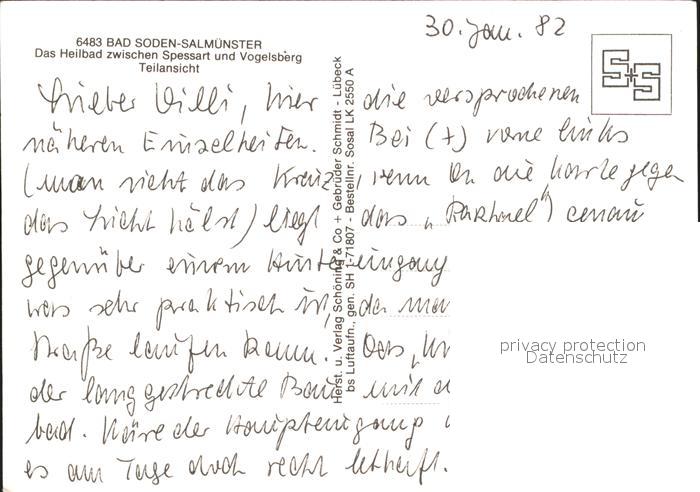 30. Jan. 82
6483 BAD SODEN-SALMÜNSTER
Das Heilbad zwischen Spessart und Vogelsberg
Teilansicht
S+S
Lieber Willi, hier die versprochenen
näheren Einzelheiten. Bei (+) vorne links
(man sieht das Kreuz, wenn Du die Karte gegen
das Licht hälst) liegt das „Raphael") genau
gegenüber einem Hintereingang
was sehr praktisch ist, da man
Straße laufen kann. Das
der langgestreckte Bau mit
bad. Wäre der Haupteingang
es am Tage doch recht lebhaft.
Herst. u. Verlag Schöning & Co + Gebrüder Schmidt - Lübeck
bs Luftaufn., gen. SH 1-71807 - Bestellnr. Sosal LK 2550 A
privacy protection
Datenschutz